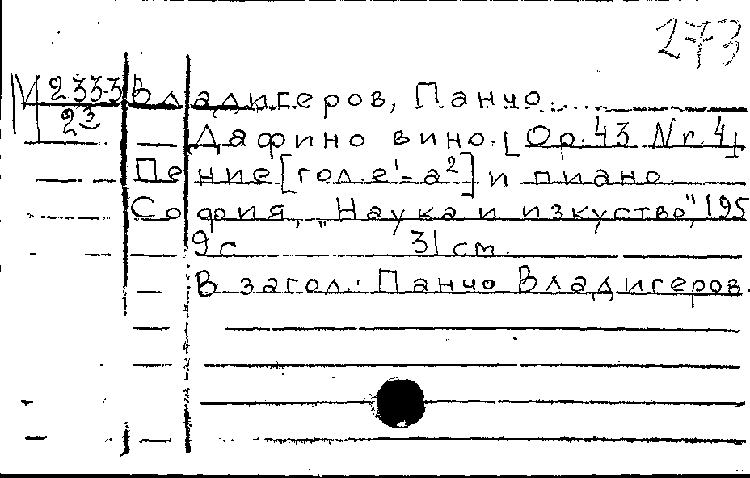 273
М 233-3 Владигеров, Панчо.
23 Дафино вино. [Op. 43 Nr. 4]
Пение [гол. e¹-a²] и пиано.
София, "Наука и изкуство", 195
9 с 31 см.
В загол.: Панчо Владигеров.